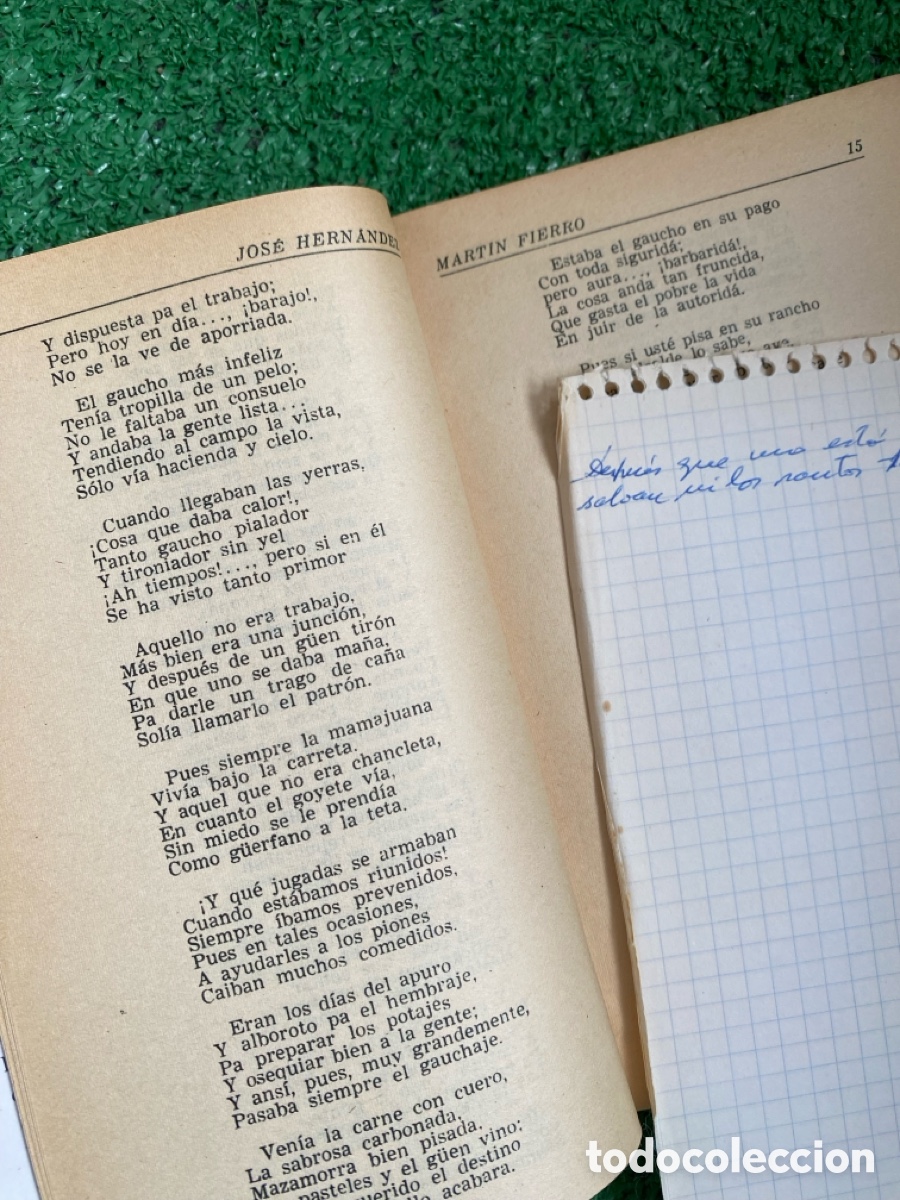 JOSÉ HERNÁNDEZ
Y dispuesta pa el trabajo;
Pero hoy en día..., ¡barajo!,
No se la ve de aporriada.
El gaucho más infeliz
Tenía tropilla de un pelo;
No le faltaba un consuelo
Y andaba la gente lista...
Tendiendo al campo la vista,
Sólo vía hacienda y cielo.
Cuando llegaban las yerras,
¡Cosa que daba calor!,
Tanto gaucho pialador
Y tironiador sin yel
¡Ah tiempos!..., pero si en él
Se ha visto tanto primor
Aquello no era trabajo,
Más bien era una junción,
Y después de un güen tirón
En que uno se daba maña,
Pa darle un trago de caña
Solía llamarlo el patrón.
Pues siempre la mamajuana
Vivía bajo la carreta.
Y aquel que no era chancleta,
En cuanto el goyete vía,
Sin miedo se le prendía
Como güerfano a la teta.
¡Y qué jugadas se armaban
Cuando estábamos riunidos!
Siempre íbamos prevenidos,
Pues en tales ocasiones,
A ayudarles a los piones
Caiban muchos comedidos.
Eran los días del apuro
Y alboroto pa el hembraje,
Pa preparar los potajes
Y osequiar bien a la gente;
Y ansí, pues, muy grandemente,
Pasaba siempre el gauchaje.
Venía la carne con cuero,
La sabrosa carbonada,
Mazamorra bien pisada.
pasteles y el güen vino:
querido el destino
acabara.
MARTIN FIERRO
15
Estaba el gaucho en su pago
Con toda siguridá;
pero aura..., ¡barbaridá!,
La cosa anda tan fruncida,
Que gasta el pobre la vida
En juir de la autoridá.
Pues si usté pisa en su rancho
lo sabe,
Después que uno está
salvan ni los santos
todocoleccion